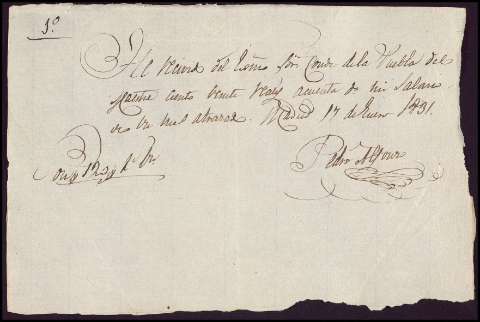 5º
He recivido del Exmo Sor Conde de la Puebla del
Maestre ciento veinte reales a cuenta de mi salario
Madrid 17 de Enero 1831.
Son 120 rs vn
Pedro Alfonso